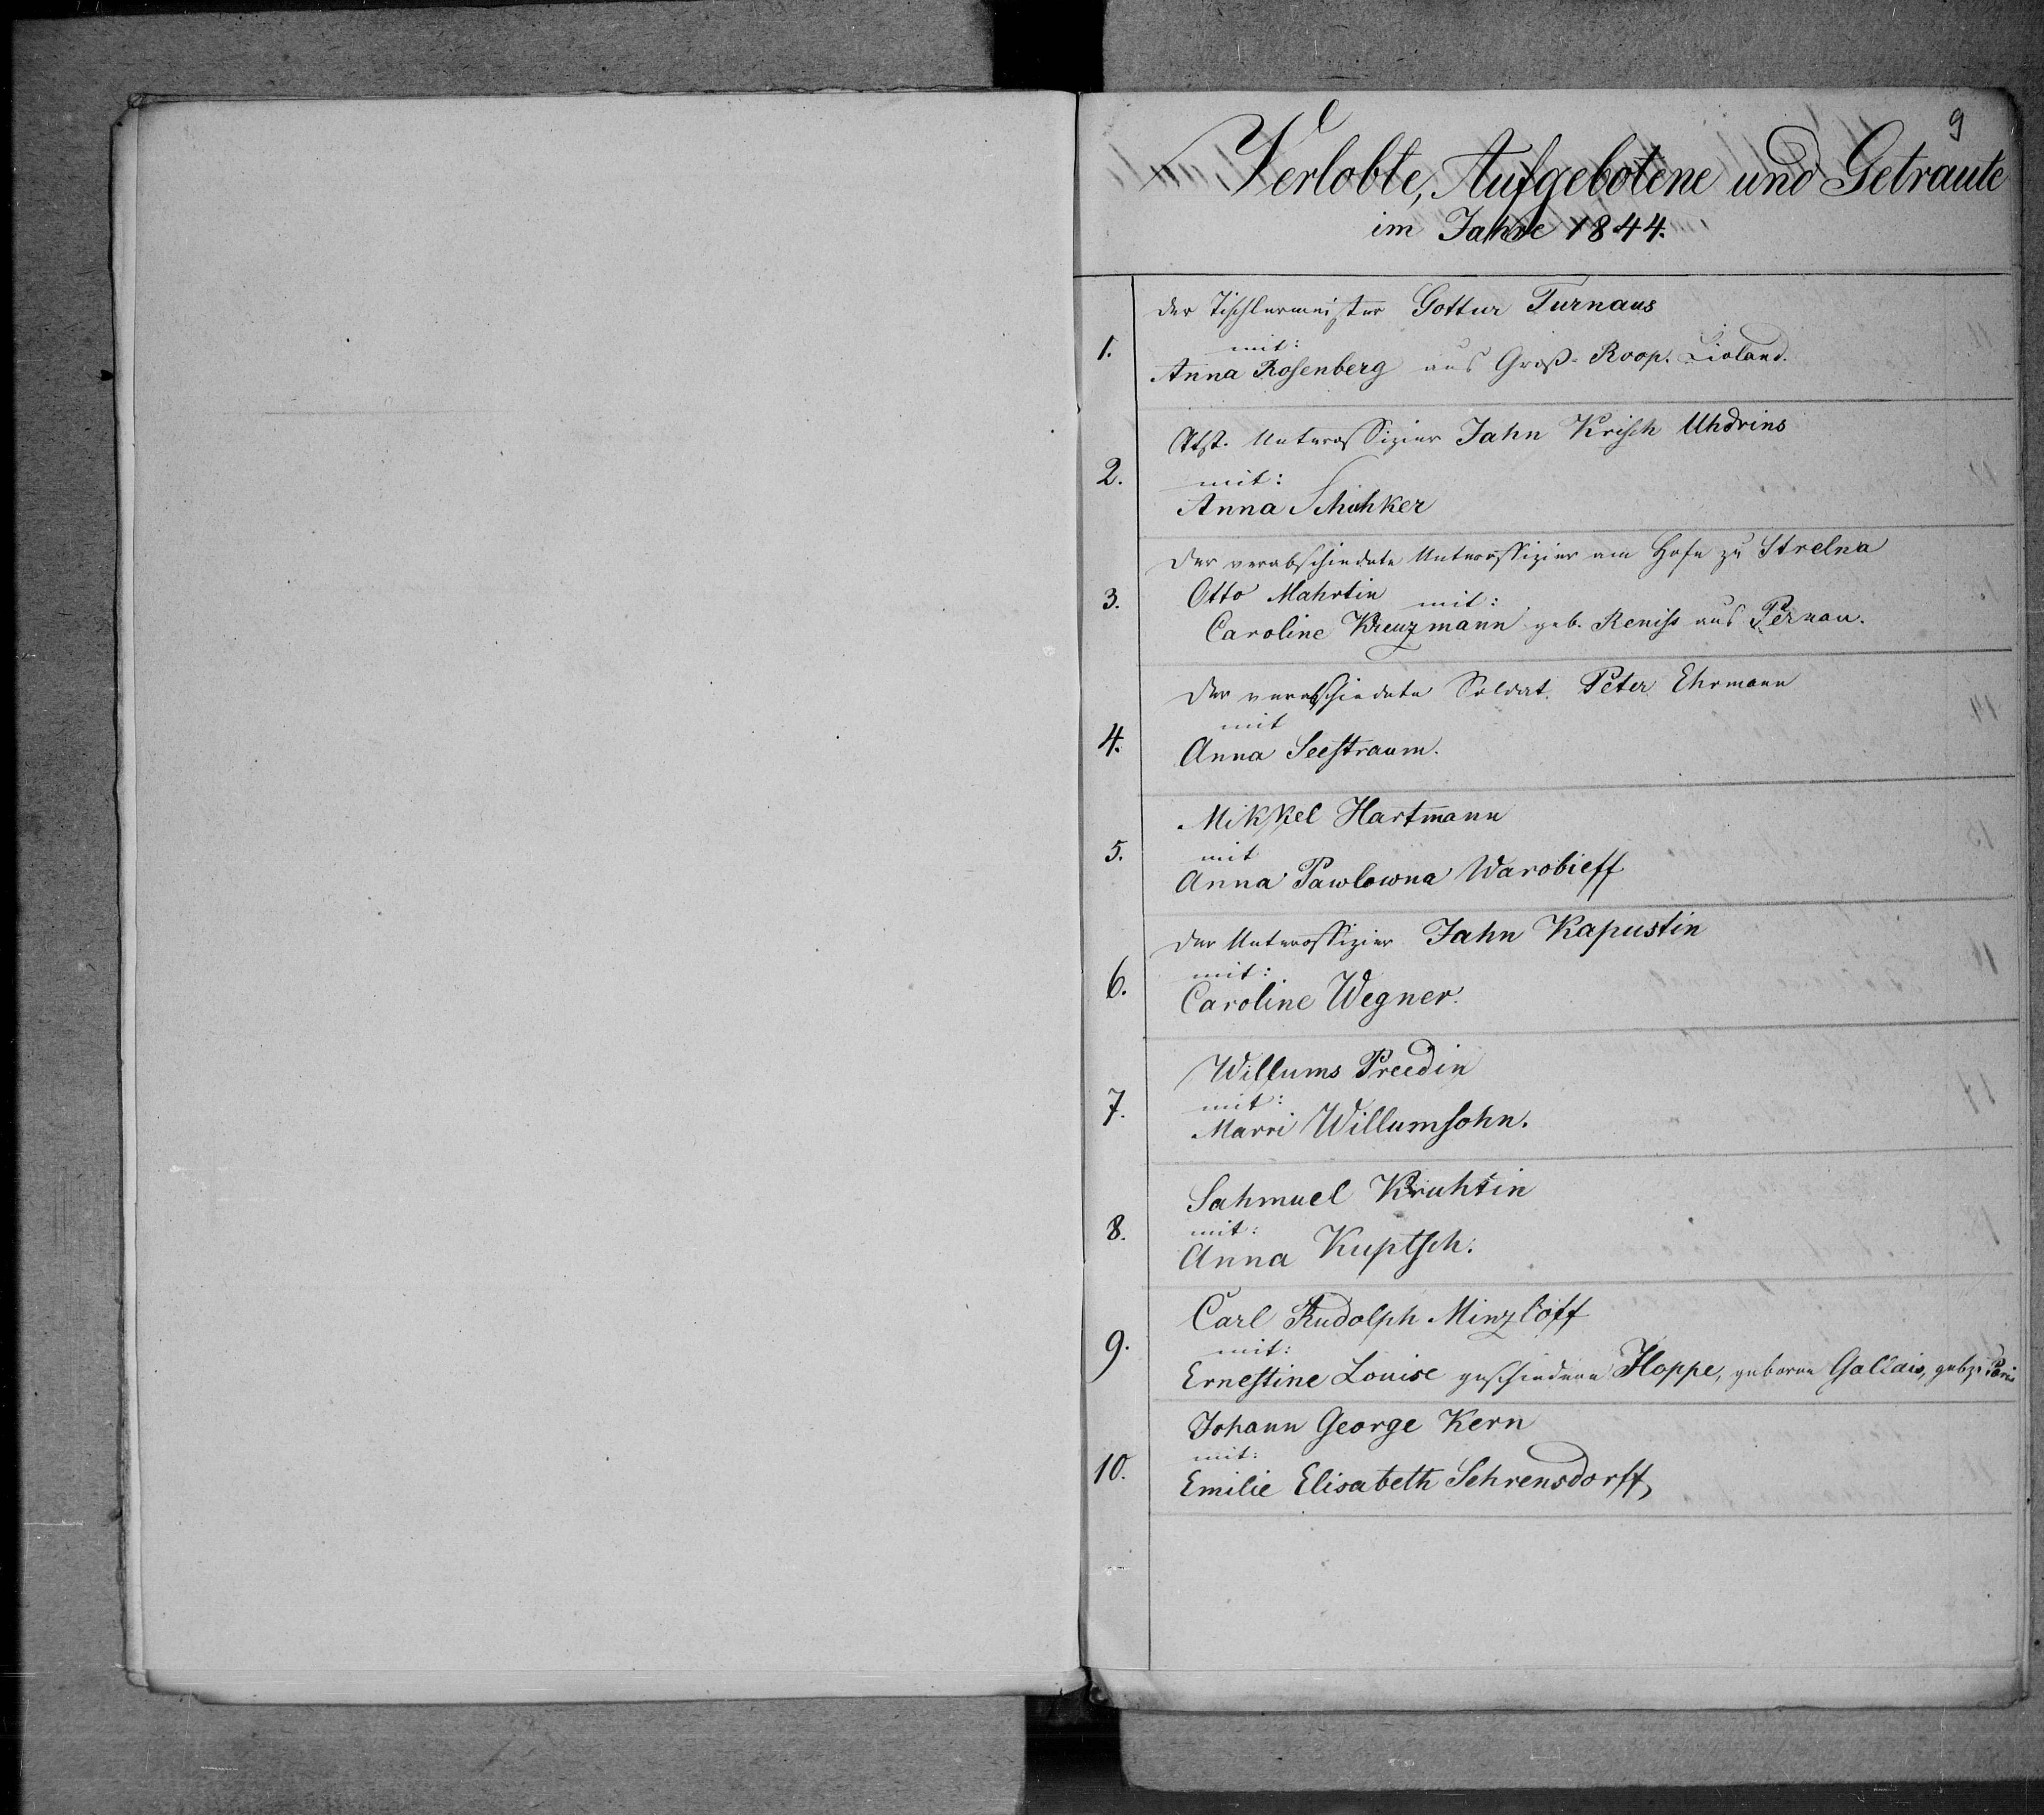 9
Verlobte, Aufgebotene und Getraute
im Jahre 1844.
der Tischlermeister Gottur Turnaus
1.
mit:
Anna Rosenberg aus Groß-Roop. Livland.
Unteroffizier Jahn Krisch Uhdrins
2.
mit:
Anna Schihker
Der verabschiedete Unteroffizier am Hofe zu Strelna
3.
Otto Mahrtin mit:
Caroline Kreuzmann geb. Reniss aus Pernau.
Der verabschiedete Soldat Peter Ehrmann
mit
4.
Anna Seestraum.
Mikkel Hartmann
5.
mit
Anna Pawlowna Warobieff
Der Unteroffizier Jahn Kapustin
6.
mit:
Caroline Wegner.
Willums Preedin
7.
mit:
Marri Willumsohn.
Sahmuel Kruhtin
8.
mit:
Anna Kuptsch.
Carl Rudolph Minzloff
9.
mit:
Ernestine Louise geschiedene Hoppe, geborne Gallais, geb. z. Paris
Johann George Kern
10.
mit:
Emilie Elisabeth Sehrensdorff